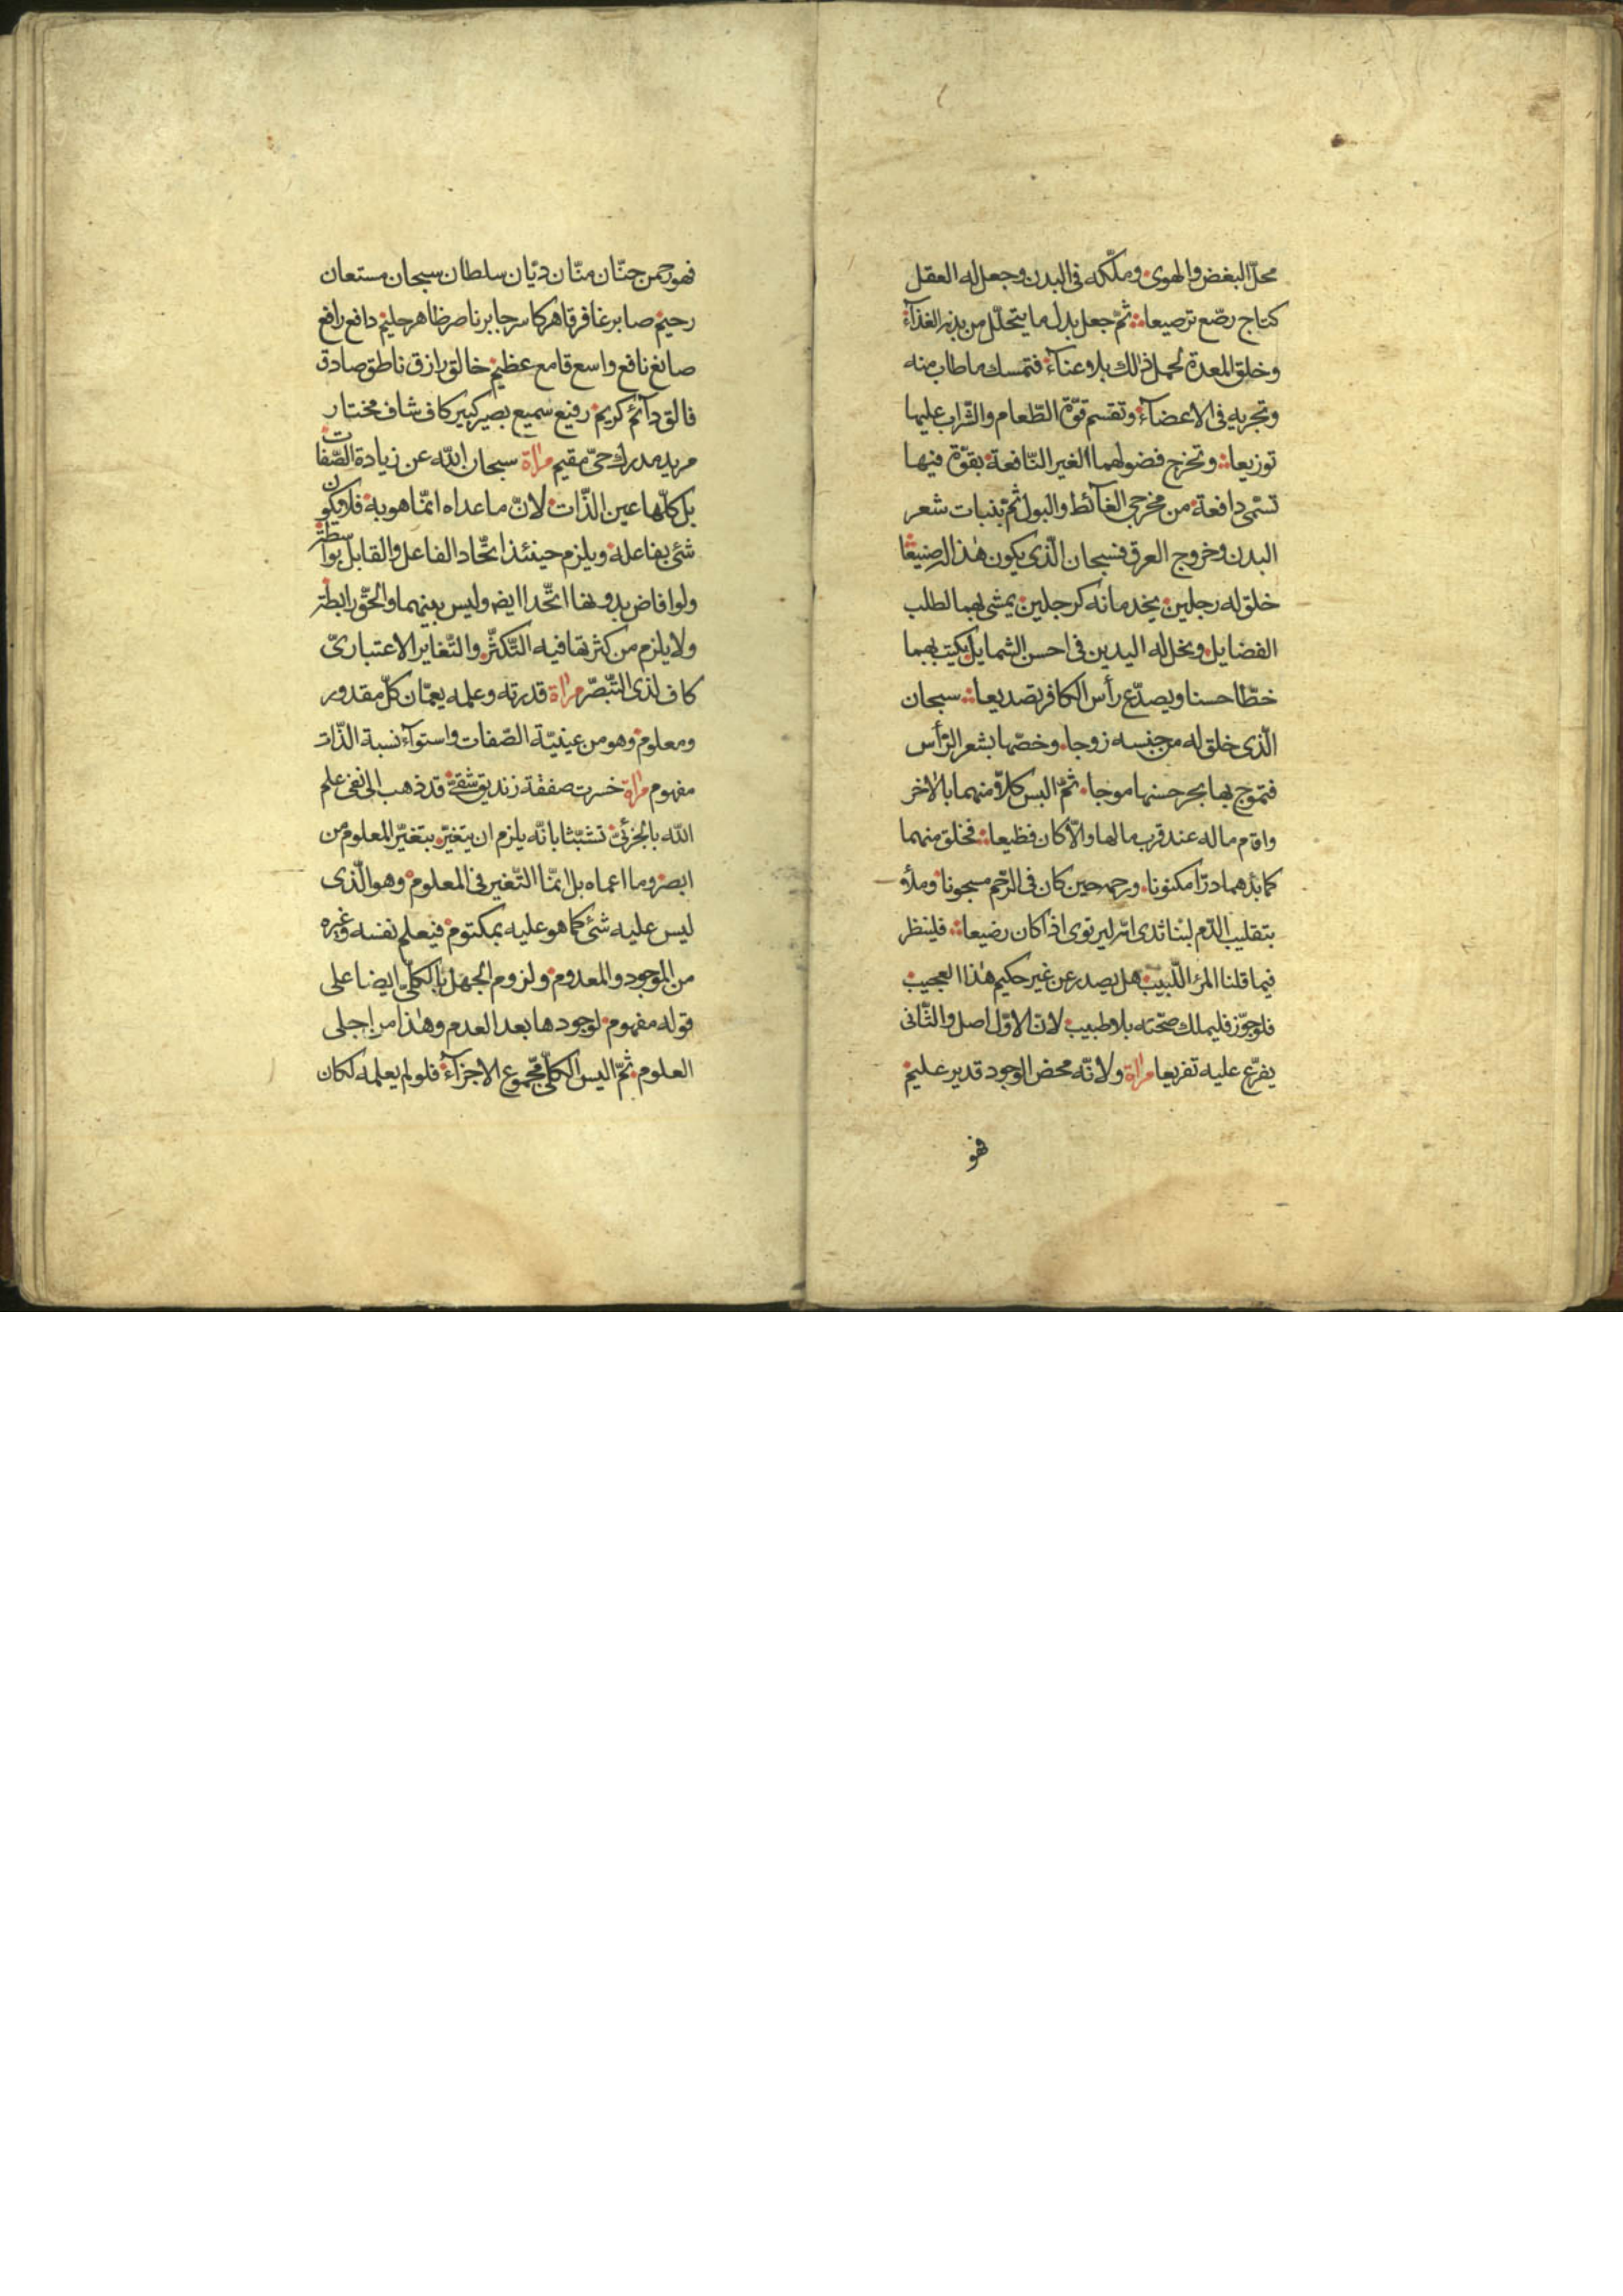 محلّ البغض والهوى وملّكه فى البدن وجعل له العقل
كتاج رصّع ترصيعا ثمّ جعل بدل ما يتحلّل من بدنه الغذآء
وخلق المعدة لحمل ذٰلك بلا وعنآء فتمسك ما طاب منه
وتجريه فى الاعضآء وتقسم قوّة الطّعام والشّراب عليها
توزيعا وتخرج فضولهما الغير النّافعة بقوّة فيها
تسمّى دافعة من مخرجى الغآئط والبول ثم تنبات شعر
البدن وخروج العرق فسبحان الّذى يكون هٰذا له صنيعا
خلق له رجلين يخدمانه كرجلين يمشى بهما لطلب
الفضايل ونحل له اليدين فى احسن الشمايل يكتب بهما
خطّا حسنا ويصدّع رأس الكافر تصديعا سبحان
الّذى خلق له من جنسه زوجا وخصّها بشعر الرّأس
فتموج بها بحر حسنها موجا ثمّ البس كلاّ منهما بالاٰخر
واقام ماله عند قرب مالها والاّ كان فظيعا فخلق منهما
كما بدٔهما درّا مكنونا ورحمه حين كان فى الرّحم مسجونا وملأ
بتقليب الدّم لبنا ثدى امّه ليرتوى اذا كان رضيعا فلينظر
فيما قلنا المرٔ اللّبيب هل يصدر عن غير حكيم هٰذا العجيب
فلو جوّز فليملك صحّته بلا طبيب لانّ الاوّل اصل والثّانى
يفرّع عليه تفريعا مرٰاة ولانّه محض الوجود قدير عليم
فهو
فهو رحمن حنّان منّان ديّان سلطان سبحان مستعان
رحيم صابر غافر قاهر كاسر جابر ناصر ظاهر حليم دافع رافع
صانع نافع واسع قامع عظيم خالق رازق ناطق صادق
فالق دآئم كريم رفيع سميع بصير كبير كاف شاف مختار
مريد مدرك حىّ مقيم مرٰاة سبحان اللّه عن زيادة الصّفات
بل كلّها عين الذّات لانّ ما عداه انّما هو به فلا يكون
شئ بفاعل له ويلزم حينئذ اتّحاد الفاعل والقابل بواسطة
ولو افاض بدونها اتّحدا ايضا وليس بينهما والحقّ رابطة
ولا يلزم من كثرتها فيه التّكثّر والتّغاير الاعتبارىّ
كاف لذى التّبصّر مرٰاة قدرته وعلمه يعمّان كلّ مقدور
ومعلوم وهو من عينيّة الصّفات واستوآء نسبة الذّات
مفهوم مرٰاة خسرت صفقة زنديق شقىّ قد ذهب الى نفى علم
اللّه بالجزئىّ تشبّثا بانّه يلزم ان يتغيّر بتغيّر المعلوم من
ابصره وما اعماه بل انّما التّغير فى المعلوم وهو الّذى
ليس عليه شئ كما هو عليه بمكتوم فيعلم نفسه وغيره
من الموجود والمعدوم ولزوم الجهل بالكلّى ايضا على
قوله مفهوم لوجودها بعد العدم وهٰذا من اجلى
العلوم ثمّ اليس الكلّى مجموع الاجزآء فلو لم يعلمه لكان